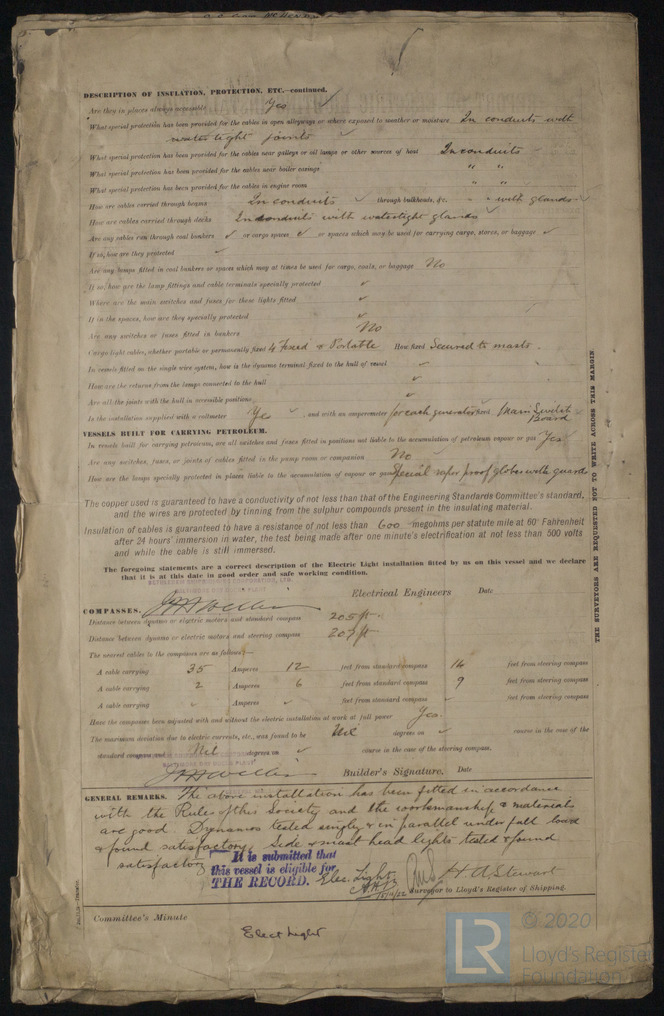 DESCRIPTION OF INSULATION, PROTECTION, ETC.—continued.
Are they in places always accessible Yes
What special protection has been provided for the cables in open alleyways or where exposed to weather or moisture In conduits with
watertight joints
What special protection has been provided for the cables near galleys or oil lamps or other sources of heat In conduits
What special protection has been provided for the cables near boiler casings " "
What special protection has been provided for the cables in engine room " "
How are cables carried through beams In conduits through bulkheads, &c. " " with glands
How are cables carried through decks In conduits with watertight glands
Are any cables run through coal bunkers ✓ or cargo spaces ✓ or spaces which may be used for carrying cargo, stores, or baggage ✓
If so, how are they protected ✓
Are any lamps fitted in coal bunkers or spaces which may at times be used for cargo, coals, or baggage No
If so, how are the lamp fittings and cable terminals specially protected ✓
Where are the main switches and fuses for these lights fitted ✓
If in the spaces, how are they specially protected ✓
Are any switches or fuses fitted in bunkers No
Cargo light cables, whether portable or permanently fixed 4 Fixed & Portable How fixed Secured to masts.
In vessels fitted on the single wire system, how is the dynamo terminal fixed to the hull of vessel ✓
How are the returns from the lamps connected to the hull ✓
Are all the joints with the hull in accessible positions ✓
Is the installation supplied with a voltmeter Yes and with an amperemeter for each generator Main Switch
Board
VESSELS BUILT FOR CARRYING PETROLEUM.
In vessels built for carrying petroleum, are all switches and fuses fitted in positions not liable to the accumulation of petroleum vapour or gas Yes
Are any switches, fuses, or joints of cables fitted in the pump room or companion No
How are the lamps specially protected in places liable to the accumulation of vapour or gas Special vapor proof globes with guards
The copper used is guaranteed to have a conductivity of not less than that of the Engineering Standards Committee's standard,
and the wires are protected by tinning from the sulphur compounds present in the insulating material.
Insulation of cables is guaranteed to have a resistance of not less than 600 megohms per statute mile at 60° Fahrenheit
after 24 hours' immersion in water, the test being made after one minute's electrification at not less than 500 volts
and while the cable is still immersed.
The foregoing statements are a correct description of the Electric Light installation fitted by us on this vessel and we declare
that it is at this date in good order and safe working condition.
Electrical Engineers Date
COMPASSES.
Distance between dynamo or electric motors and standard compass 205 ft.
Distance between dynamo or electric motors and steering compass 207 ft
The nearest cables to the compasses are as follows:—
A cable carrying 35 Amperes 12 feet from standard compass 14 feet from steering compass
A cable carrying 2 Amperes 6 feet from standard compass 9 feet from steering compass
A cable carrying ✓ Amperes ✓ feet from standard compass ✓ feet from steering compass
Have the compasses been adjusted with and without the electric installation at work at full power Yes.
The maximum deviation due to electric currents, etc., was found to be Nil degrees on ✓ course in the case of the
standard compass and Nil degrees on ✓ course in the case of the steering compass.
Builder's Signature. Date
GENERAL REMARKS. The above installation has been fitted in accordance
with the Rules of this Society and the workmanship & materials
are good. Dynamos tested singly & in parallel under full load
& found satisfactory. Side & mast head lights tested & found
satisfactory
It is submitted that
this vessel is eligible for
THE RECORD. Elec. Light
H A Stewart
Surveyor to Lloyd's Register of Shipping.
Committee's Minute
Elect Light
THE SURVEYORS ARE REQUESTED NOT TO WRITE ACROSS THIS MARGIN
© 2020
LR
Lloyd's Register
Foundation